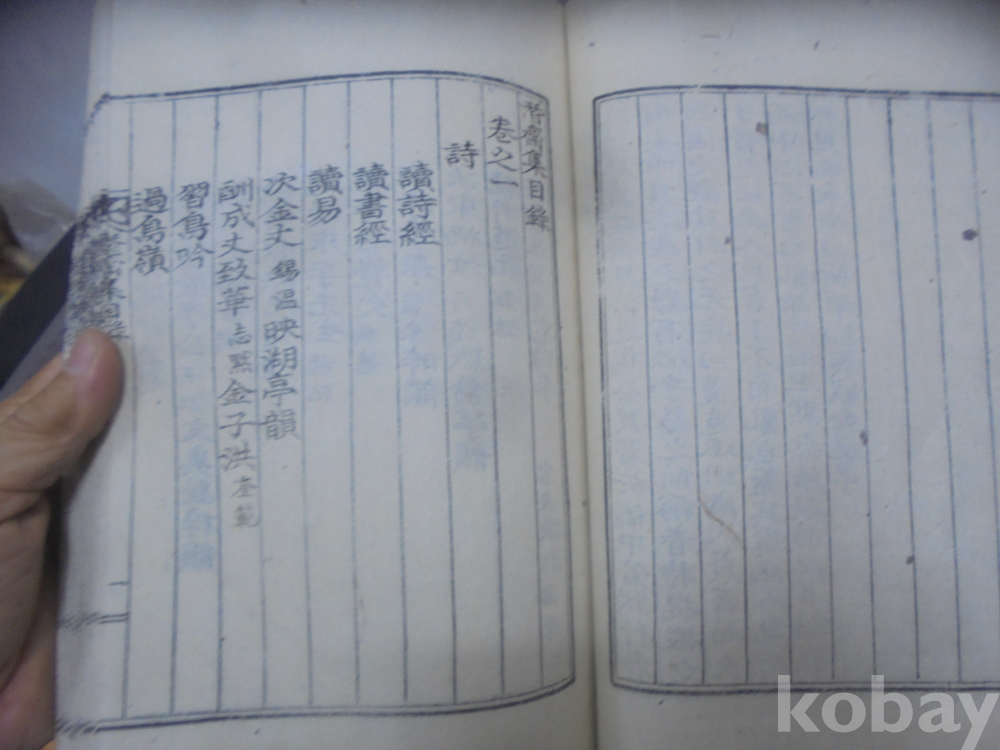 齋集目錄
卷之一
詩
讀詩經
讀書經
讀易
次金丈錫溫映湖亭韻
酬成丈致華志熙金子洪奎範
習鳥吟
過鳥嶺
集目錄
一
kobay